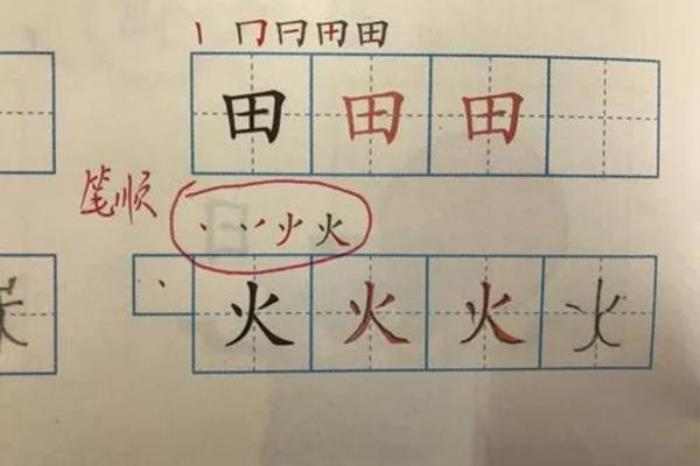 丨 冂 冃 田 田
田 田 田
笔顺
丶 火 火
丶 火 火 火 火